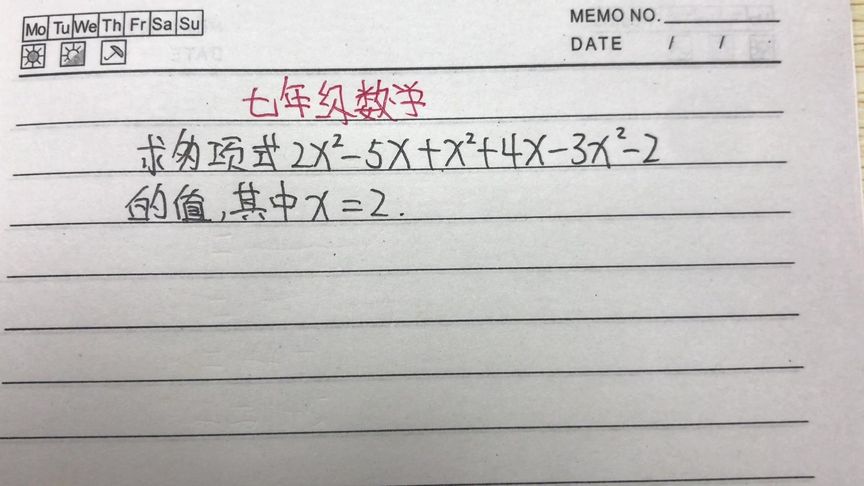 Mo Tu We Th Fr Sa Su
MEMO NO.
DATE / /
七年级数学
求多项式 2x²-5x+x²+4x-3x²-2
的值,其中x=2.